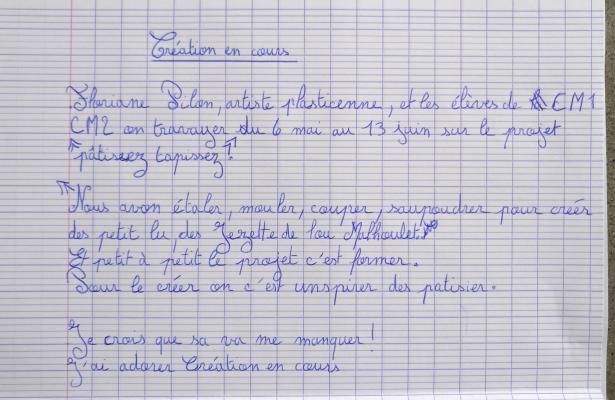 Création en cours
Floriane Pilon, artiste plasticenne, et les élèves de CM1
CM2 on travayer du 6 mai au 13 juin sur le projet
"pâtissez tapissez".
"Nous avon étaler, mouler, couper, saupoudrer pour créer
des petit lu, des Zezette de lou
Et petit à petit le projet c'est former.
Pour le créer on c'est unspirer des patisier.
Je crois que sa va me manquer !
J'ai adorer Création en cours